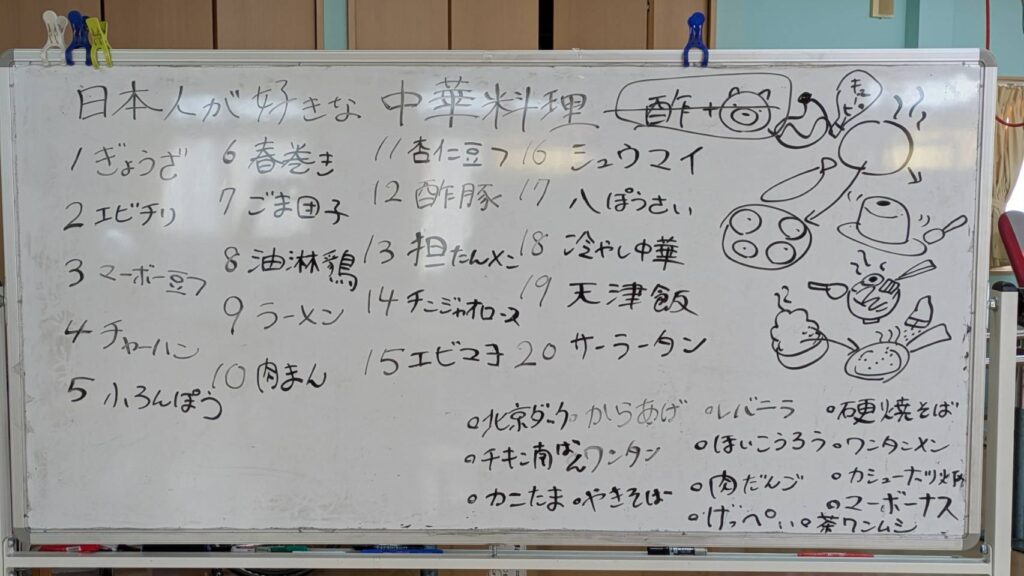 日本人が好きな 中華料理 酢+
1 ぎょうざ
2 エビチリ
3 マーボー豆フ
4 チャーハン
5 小ろんぽう
6 春巻き
7 ごま団子
8 油淋鶏
9 ラーメン
10 肉まん
11 杏仁豆フ
12 酢豚
13 担たんメン
14 チンジャオロース
15 エビマヨ
16 シュウマイ
17 八ぽうさい
18 冷やし中華
19 天津飯
20 サーラータン
。北京ダック 。からあげ 。レバニラ 。硬焼そば
。チキン南ばん 。ワンタン 。ほいこうろう 。ワンタンメン
。カニたま 。やきそば 。肉だんご 。カシューナッツ炒
。げっぺい 。茶ワンムシ 。マーボーナス